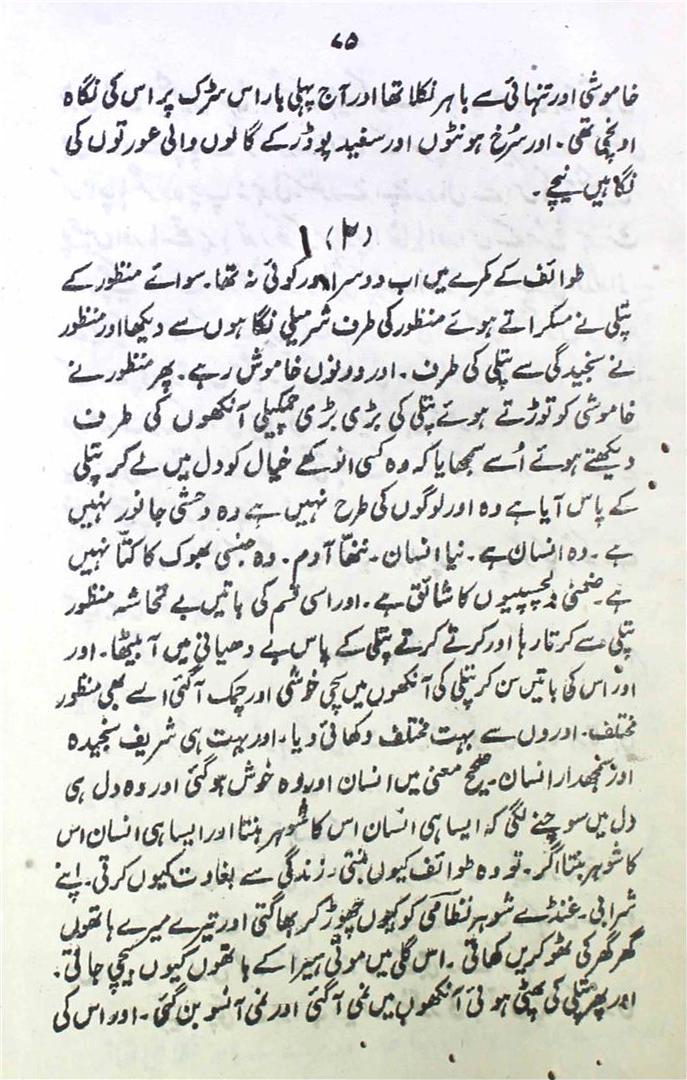 ۷۵
خاموشی اور تنہائی سے باہر نکلا تھا اور آج پہلی بار اس سڑک پر اس کی نگاہ
اونچی تھی۔ اور سُرخ ہونٹوں اور سفید پوڈر کے گالوں والی عورتوں کی
نگاہیں نیچے۔
(۲)
طوائف کے کمرے میں اب دوسرا اور کوئی نہ تھا۔ سوائے منظور کے
پتلی نے مسکراتے ہوئے منظور کی طرف شرمیلی نگاہوں سے دیکھا اور منظور
نے سنجیدگی سے پتلی کی طرف۔ اور دونوں خاموش رہے۔ پھر منظور نے
خاموشی کو توڑتے ہوئے پتلی کی بڑی بڑی چمکیلی آنکھوں کی طرف
دیکھتے ہوئے اُسے سمجھایا کہ وہ کسی انوکھے خیال کو دل میں لے کر پتلی
کے پاس آیا ہے وہ اور لوگوں کی طرح نہیں ہے وہ وحشی جانور نہیں
ہے۔ وہ انسان ہے۔ نیا انسان۔ ننھا آدم۔ وہ جنسی بھوک کا کتّا نہیں
ہے۔ ضمنی دلچسپیوں کا شائق ہے۔ اور اسی قسم کی باتیں بے تحاشہ منظور
پتلی سے کرتا رہا اور کرتے کرتے پتلی کے پاس بے دھیانی میں آ بیٹھا۔ اور
اور اس کی باتیں سن کر پتلی کی آنکھوں میں سچی خوشی اور چمک آ گئی اسے بھی منظور
مختلف۔ اوروں سے بہت مختلف دکھائی دیا۔ اور بہت ہی شریف سنجیدہ
اور سمجھدار انسان۔ صحیح معنی میں انسان اور وہ خوش ہو گئی اور وہ دل ہی
دل میں سوچنے لگی کہ ایسا ہی انسان اس کا شوہر بنتا اور ایسا ہی انسان اس
کا شوہر بنتا اگر۔ تو وہ طوائف کیوں بنتی۔ زندگی سے بغاوت کیوں کرتی۔ اپنے
شرابی۔ غنڈے شوہر نظامی کو کیوں چھوڑ کر بھاگتی اور تیرے میرے ہاتھوں
گھر گھر کی ٹھوکریں کھاتی۔ اس گلی میں موتی ہیرا کے ہاتھوں کیوں بیچی جاتی۔
اور پھر پتلی کی پھٹی ہوئی آنکھوں میں نمی آ گئی اور نمی آنسو بن گئی۔ اور اس کی